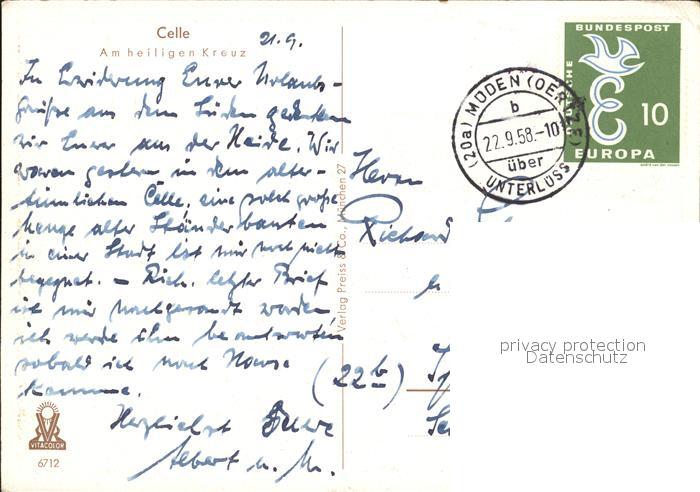 Celle
Am heiligen Kreuz
21.9.
In Erwiderung Eurer Urlaubs-
grüße aus dem Süden gedenken
wir Eurer aus der Heide. Wir
waren gestern in dem alter-
tümlichen Celle, eine solch große
Menge alter Ständerbauten
in einer Stadt ist mir noch nicht
begegnet. – Rich. letzter Brief
ist mir nachgesandt worden,
ich werde ihn beantworten
sobald ich nach Hause
komme.
Herzlichst Euer
Albert u. M.
VITACOLOR
6712
Verlag Preiss & Co., München 27
Herrn
Richard
(22b)
DEUTSCHE
BUNDESPOST
10
EUROPA
(20a) MÜDEN (OERTZE)
b
22.9.58.-10
über
UNTERLÜSS
privacy protection
Datenschutz